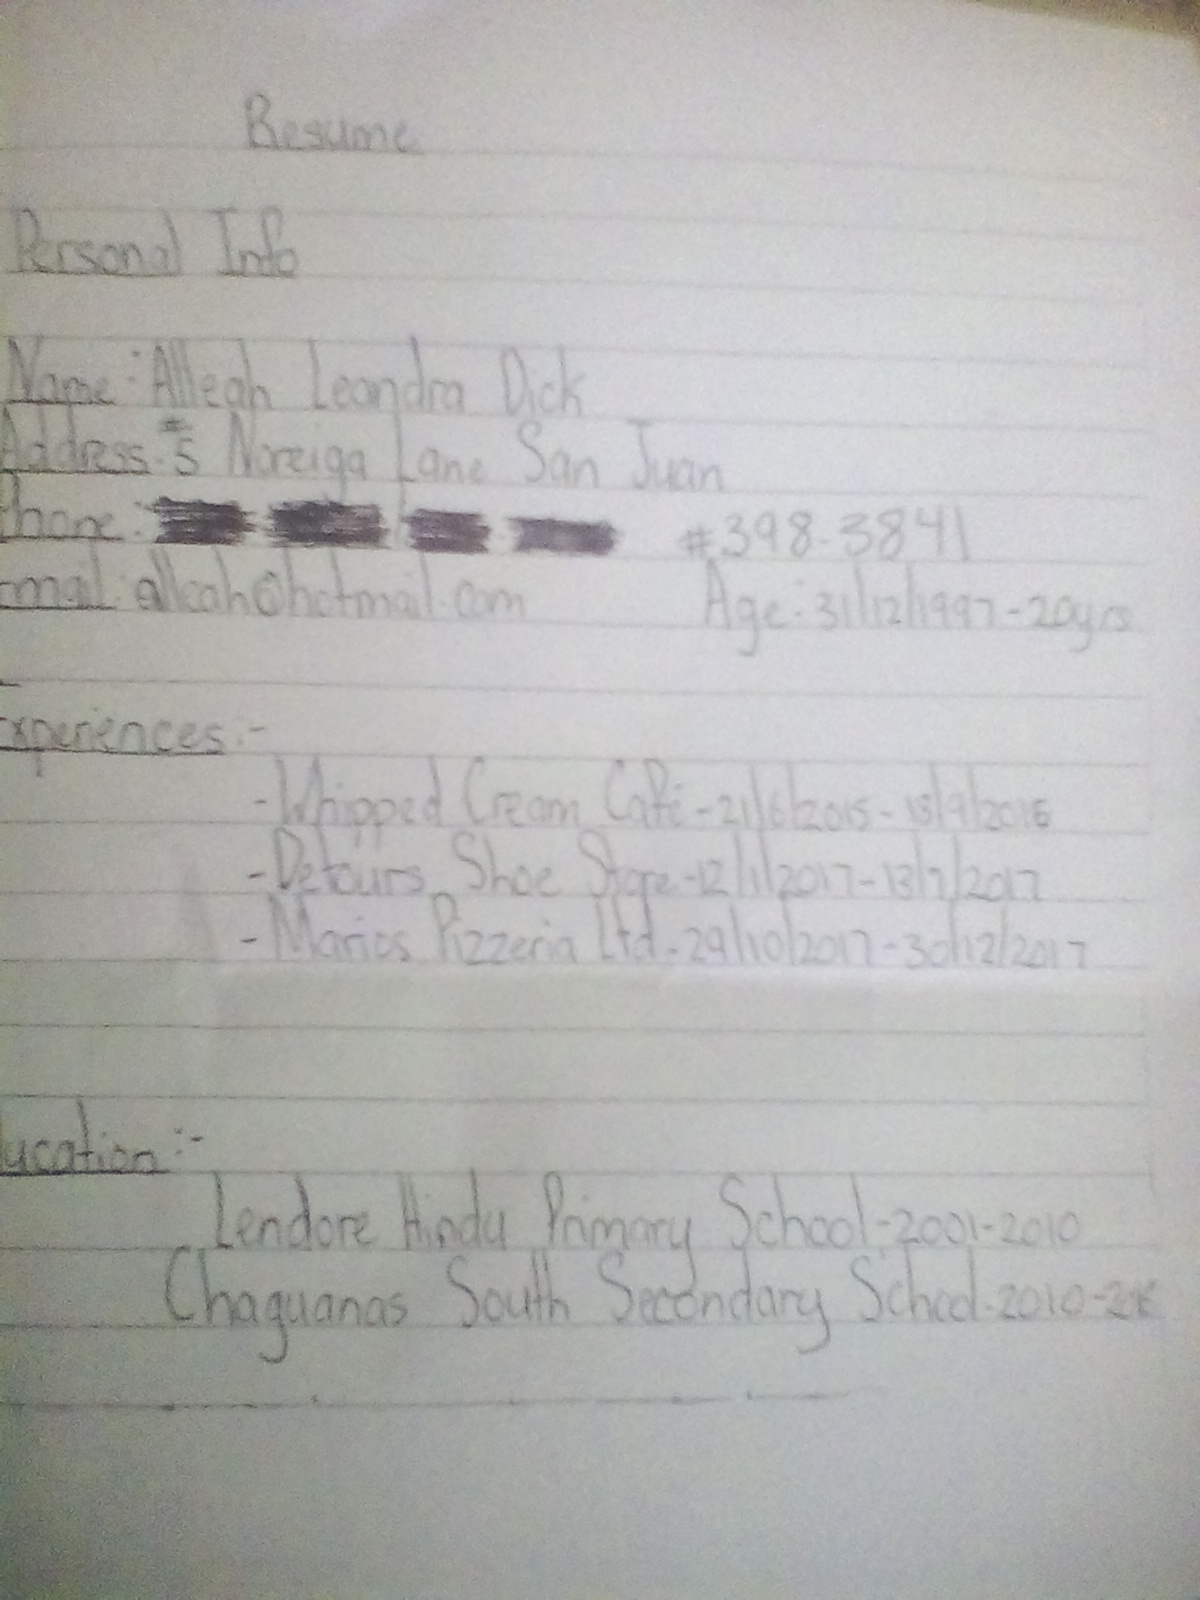 Resume
Personal Info
Name: Alleah Leandra Dick
Address: #5 Noreiga Lane San Juan
Phone: #398-3841
Email: alleah@hotmail.com Age: 31/12/1997-20yrs
Experiences:-
-Whipped Cream Café-21/6/2015-
-Detours Shoe Store-12/1/2017-13/7/2017
-Marios Pizzeria Ltd-29/10/2017-30/12/2017
ucation:-
Lendore Hindu Primary School-2001-2010
Chaguanas South Secondary School-2010-